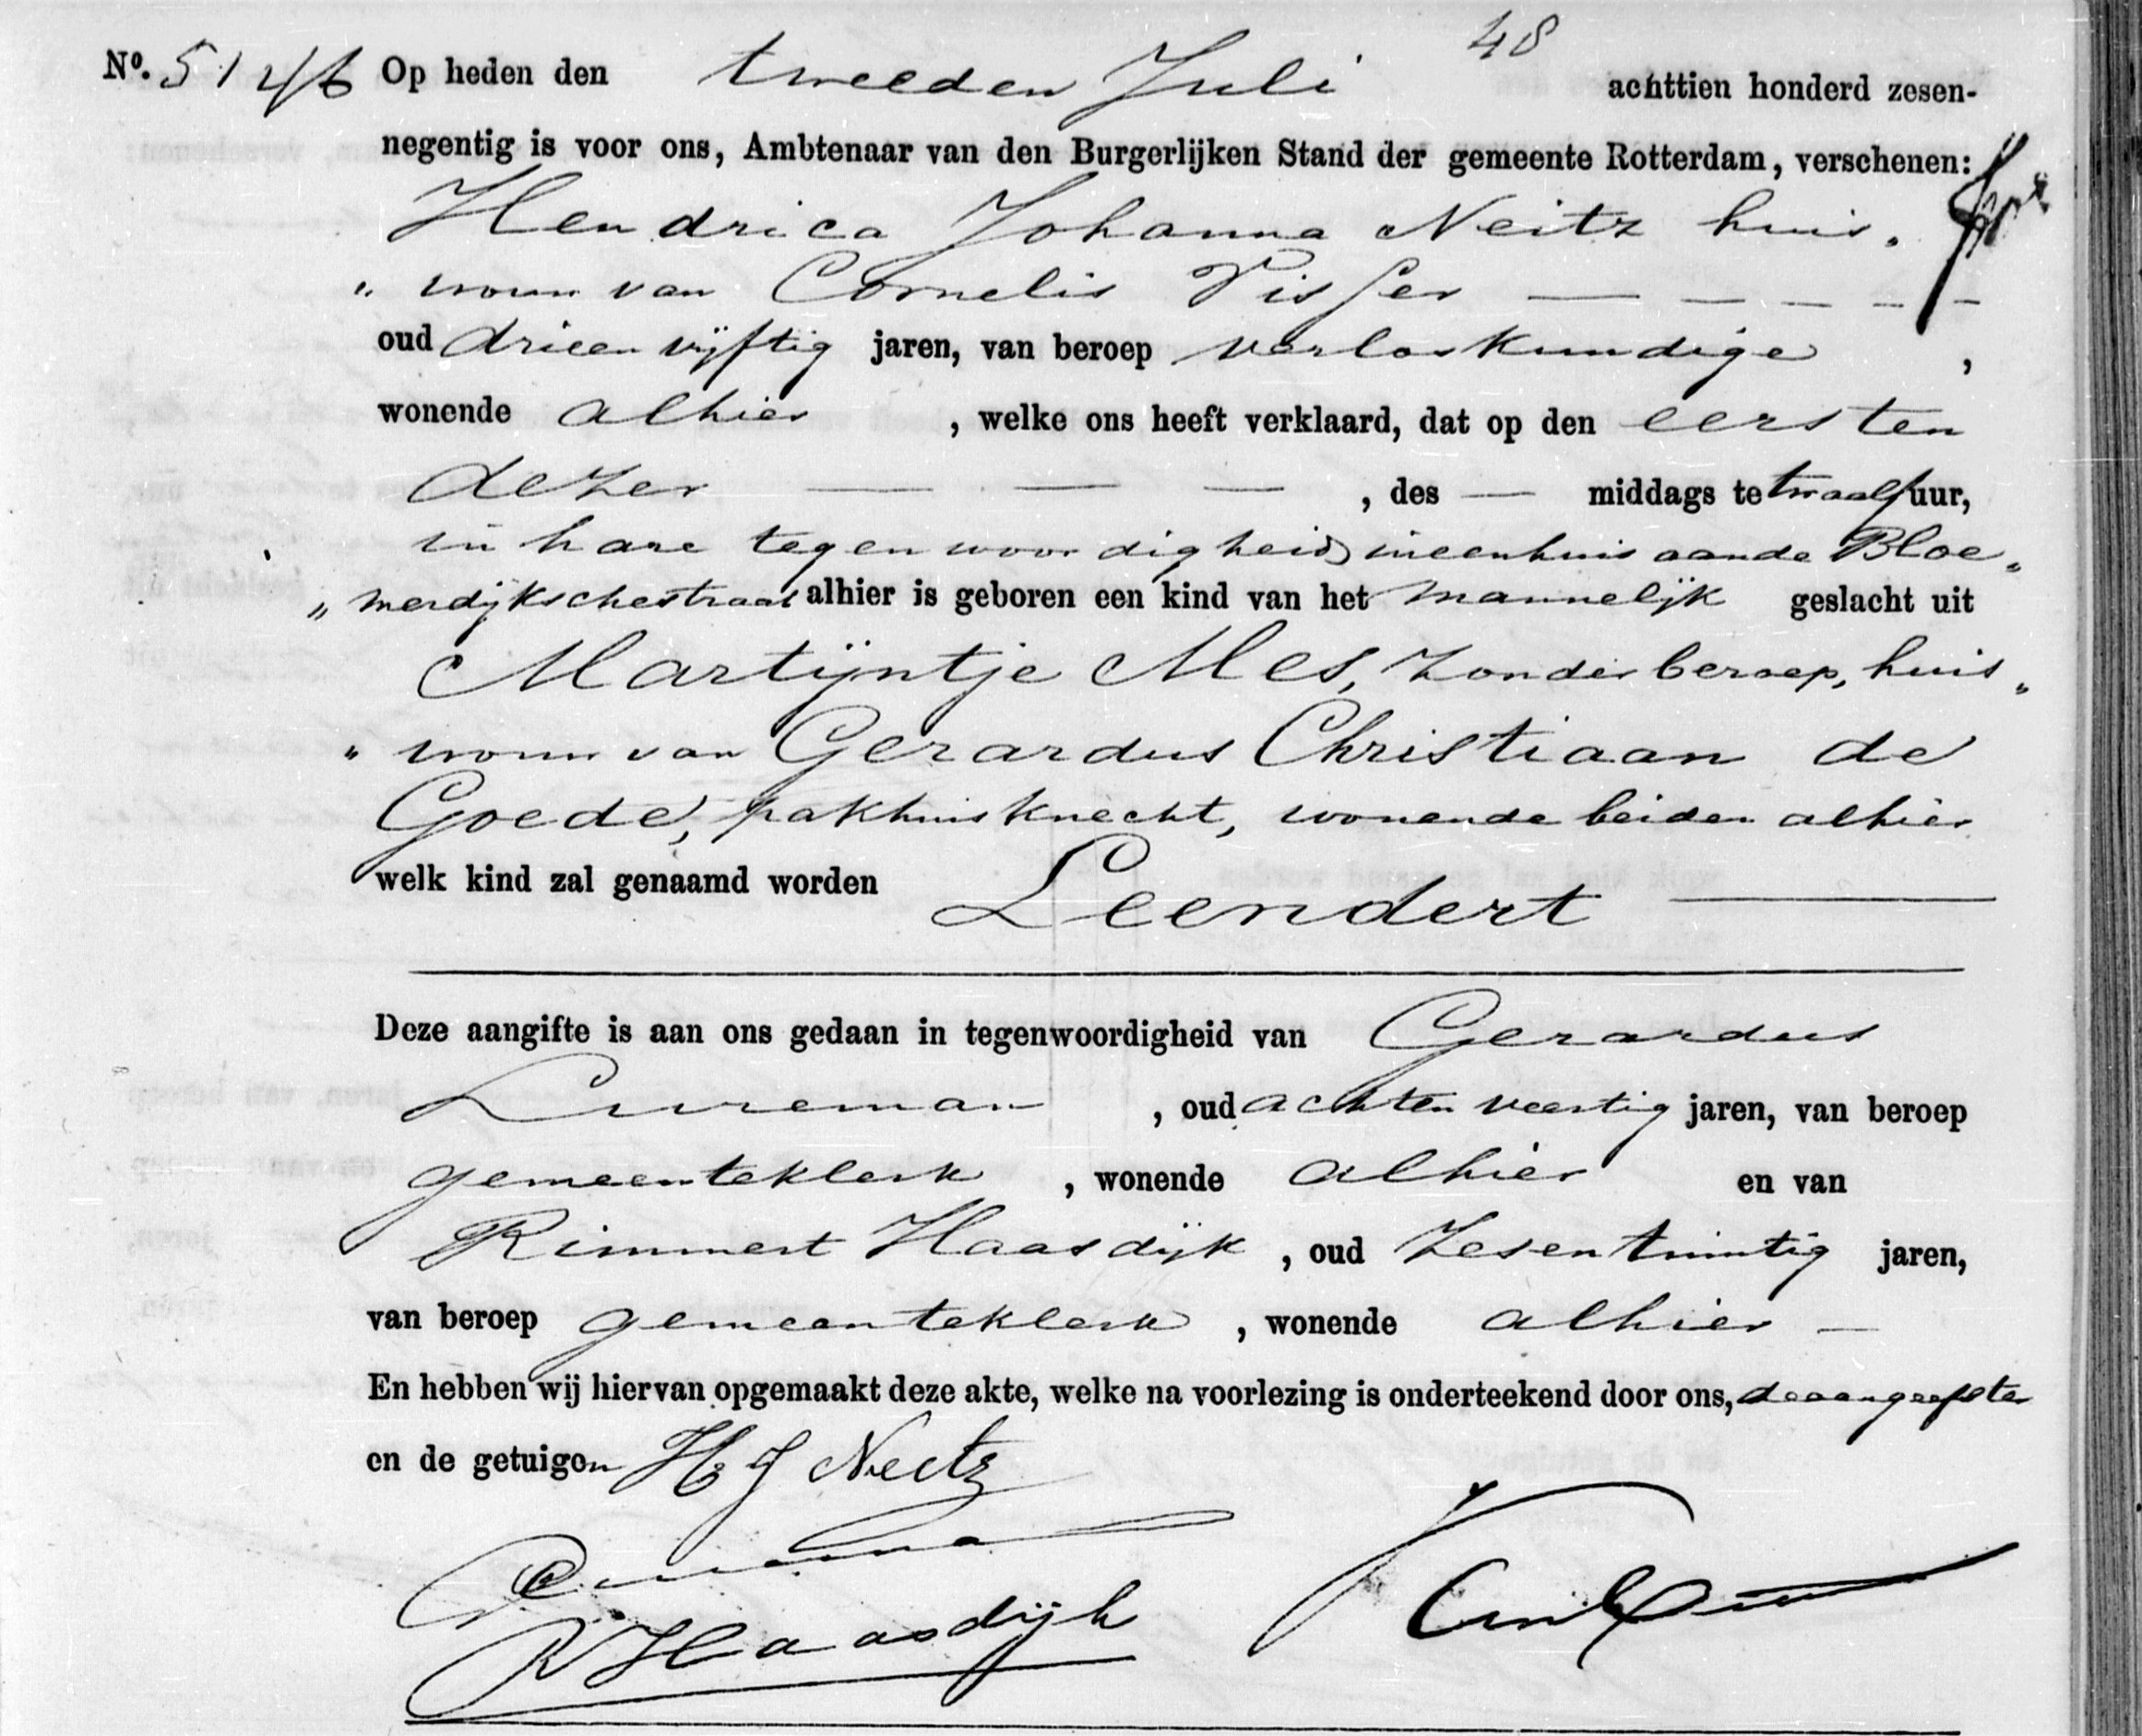 48
No. 5146 Op heden den tweeden Juli achttien honderd zesen-
negentig is voor ons, Ambtenaar van den Burgerlijken Stand der gemeente Rotterdam, verschenen:
Hendrica Johanna Neitz huis„
„vrouw van Cornelis Visser — — — — —
oud drieenvijftig jaren, van beroep verloskundige ,
wonende alhier , welke ons heeft verklaard, dat op den eersten
dezer — — — , des — middags te twaalf uur,
in hare tegenwoordigheid in een huis aan de Bloe„
„merdijkschestraat alhier is geboren een kind van het mannelijk geslacht uit
Martijntje Mes, zonder beroep, huis„
„vrouw van Gerardus Christiaan de
Goede, pakhuisknecht, wonende beiden alhier
welk kind zal genaamd worden Leendert —
Deze aangifte is aan ons gedaan in tegenwoordigheid van Gerardus
, oud achtenveertig jaren, van beroep
gemeenteklerk , wonende alhier en van
Rimmert Haasdijk , oud zesentwintig jaren,
van beroep gemeenteklerk , wonende alhier —
En hebben wij hiervan opgemaakt deze akte, welke na voorlezing is onderteekend door ons, de aangeefster
en de getuigen H J Neitz
R Haasdijk